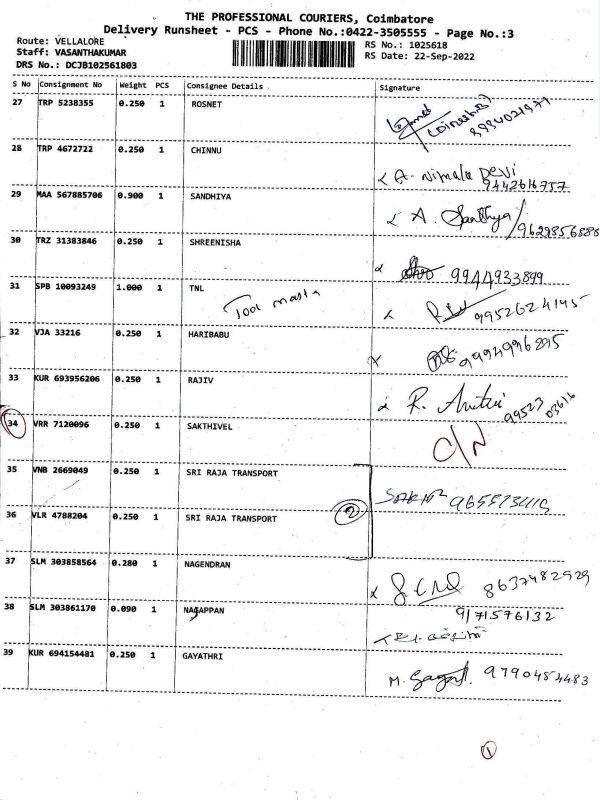 THE PROFESSIONAL COURIERS, Coimbatore
Delivery Runsheet - PCS - Phone No.:0422-3505555 - Page No.:3
Route: VELLALORE
RS No.: 1025618
Staff: VASANTHAKUMAR
RS Date: 22-Sep-2022
DRS No.: DCJB102561803
S No Consignment No Weight PCS Consignee Details Signature
27 TRP 5238355 0.250 1 ROSNET
28 TRP 4672722 0.250 1 CHINNU A. Nimala Devi
29 MAA 567885706 0.900 1 SANDHIYA A.
30 TRZ 31383846 0.250 1 SHREENISHA 9944933899
31 SPB 10093249 1.000 1 TNL
32 VJA 33216 0.250 1 HARIBABU
33 KUR 693956206 0.250 1 RAJIV R. 99523
03616
34 VRR 7120096 0.250 1 SAKTHIVEL C/N
35 VNB 2669049 0.250 1 SRI RAJA TRANSPORT
36 VLR 4788204 0.250 1 SRI RAJA TRANSPORT 2
37 SLM 303858564 0.280 1 NAGENDRAN 8637482929
38 SLM 303861170 0.090 1 NAGAPPAN 9171576132
39 KUR 694154481 0.250 1 GAYATHRI M. 9790484483
1